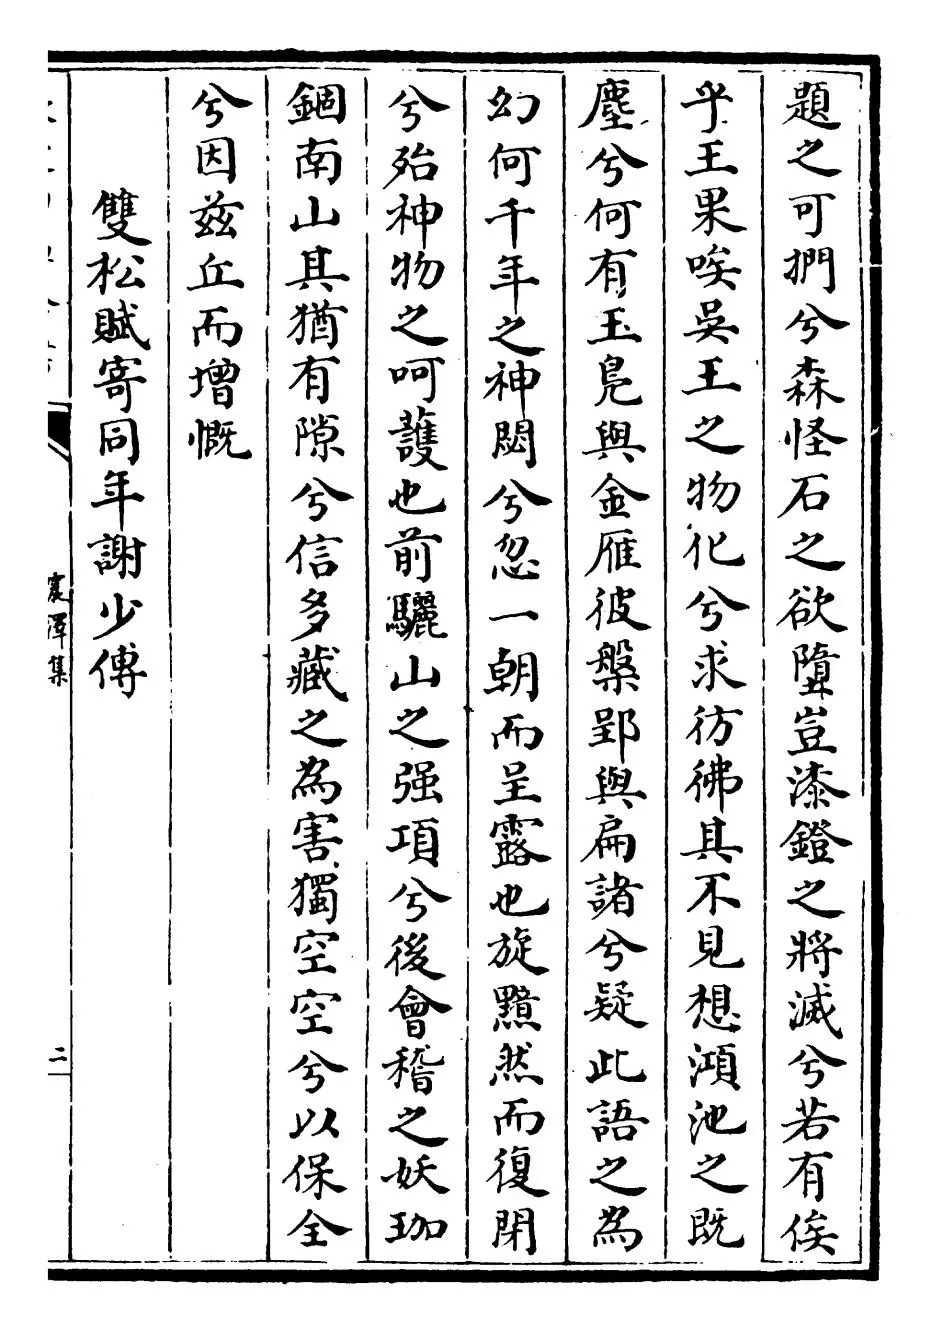 題之可捫兮森怪石之欲墮豈漆鐙之將滅兮若有俟
乎王果唉吳王之物化兮求彷彿其不見想澒池之既
塵兮何有玉鳧與金雁彼槃郢與扁諸兮疑此語之為
幻何千年之神閟兮忽一朝而呈露也旋黯然而復閉
兮殆神物之呵護也前驪山之强項兮後會稽之妖珈
錮南山其猶有隙兮信多藏之為害獨空空兮以保全
兮因兹丘而增慨
雙松賦寄同年謝少傅
震澤集
二